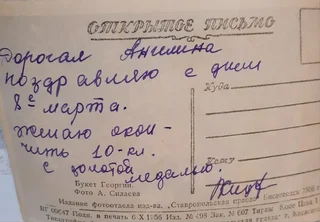 ОТКРЫТОЕ ПИСЬМО
Дорогая Ангелина
поздравляю с днем
8е марта.
Желаю окон-
чить 10-кл.
с золотой медалью.
Куда
Кому
Букет Георгин.
Фото А. Силаева
Издания фотоотдела изд-ва. „Ставропольская
Подп. в печать 6 X 1956 Изд. № 498 Зак. № 007 Тираж